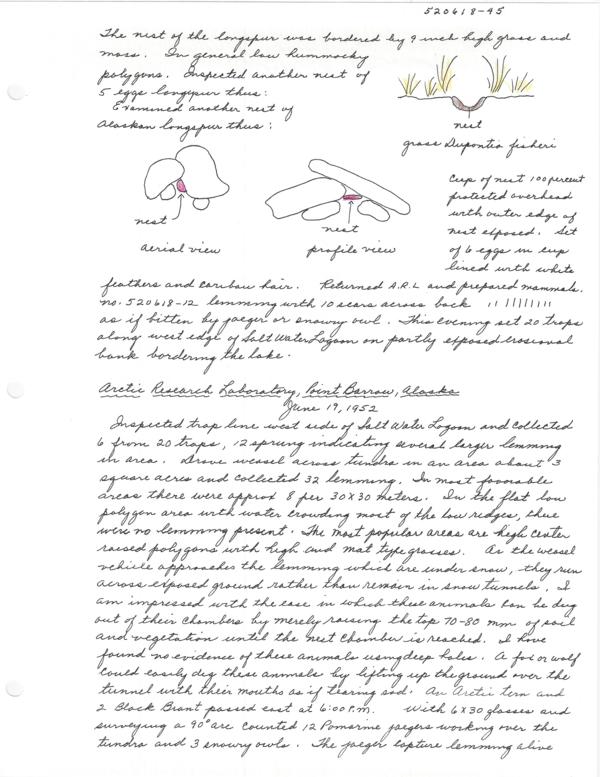 520618-45
The nest of the longspur was bordered by 9 inch high grass and
moss. In general low hummocky
polygons. Inspected another nest of
5 eggs longspur thus:
Examined another nest of
Alaskan longspur thus:
nest
grass Dupontia fisheri
nest
aerial view
nest
profile view
Cup of nest 100 percent
protected overhead
with outer edge of
nest exposed. Set
of 6 eggs in cup
lined with white
feathers and caribou hair. Returned A.R.L and prepared mammals.
no. 520618-12 lemming with 10 scars across back
as if bitten by jaeger or snowy owl. This evening set 20 traps
along west edge of Salt Water Lagoon on partly exposed erosional
bank bordering the lake.
Arctic Research Laboratory, Point Barrow, Alaska
June 19, 1952
Inspected trap line west side of Salt Water Lagoon and collected
6 from 20 traps, 12 sprung indicating several larger lemming
in area. Drove weasel across tundra in an area about 3
square acres and collected 32 lemming. In most favorable
areas there were approx 8 per 30X30 meters. In the flat low
polygon area with water crowding most of the low ridges, there
were no lemming present. The most popular areas are high center
raised polygons with high and mat type grasses. As the weasel
vehicle approaches the lemming which are under snow, they run
across exposed ground rather than remain in snow tunnels. I
am impressed with the ease in which these animals can be dug
out of their chambers by merely raising the top 70-80 mm of soil
and vegetation until the nest chamber is reached. I have
found no evidence of these animals using deep holes. A fox or wolf
could easily dig these animals by lifting up the ground over the
tunnel with their mouths as if tearing sod. An Arctic tern and
2 Black Brant passed east at 6:00 P.m. With 6X30 glasses and
surveying a 90° arc counted 12 Pomarine jaegers working over the
tundra and 3 snowy owls. The jaeger capture lemming alive